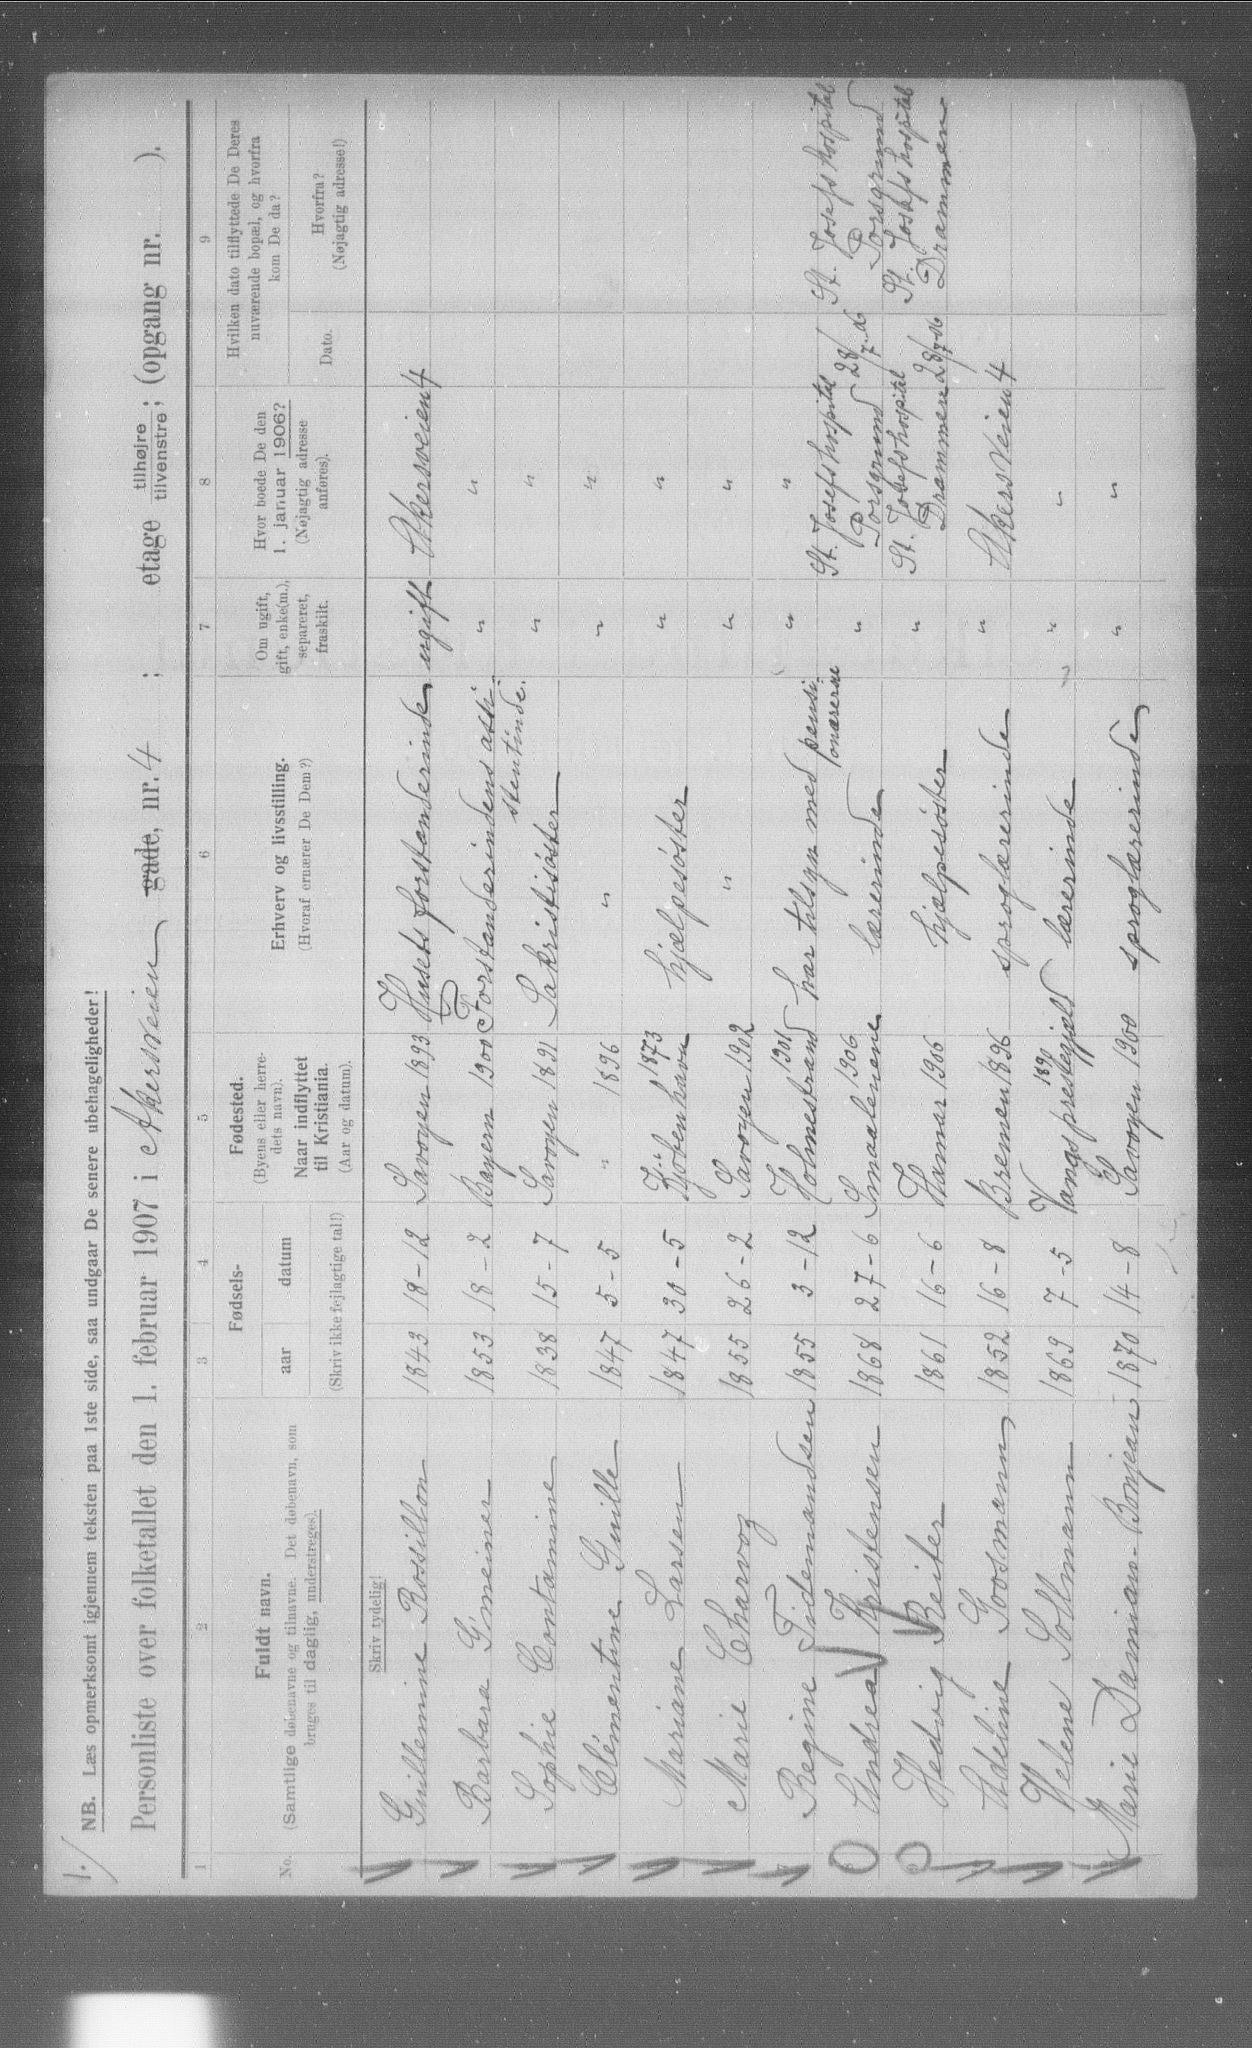 1./
NB. Læs opmerksomt igjennem teksten paa 1ste side, saa undgaar De senere ubehageligheder!
Personliste over folketallet den 1. februar 1907 i Akersveien gade, nr. 4 ; etage tilhøjre tilvenstre; (opgang nr. ).
1 2 3 4 5 6 7 8 9
No.
Fuldt navn.
(Samtlige døbenavne og tilnavne. Det døbenavn, som
bruges til daglig, understreges).
Skriv tydelig!
Fødsels-
aar datum
(Skriv ikke fejlagtige tal!)
Fødested.
(Byens eller herre-
dets navn).
Naar indflyttet
til Kristiania.
(Aar og datum).
Erhverv og livsstilling.
(Hvoraf ernærer De Dem?)
Om ugift,
gift, enke(m.),
separeret,
fraskilt.
Hvor boede De den
1. januar 1906?
(Nøjagtig adresse
anføres).
Hvilken dato tilflyttede De Deres
nuværende bopæl, og hvorfra
kom De da?
Dato.
Hvorfra?
(Nøjagtig adresse!)
Guillemine Rossillon 1843 18-12 Savoyen 1893 Husets forstanderinde ugift Akersveien 4
Barbara Gmeiner 1853 18-2 Bayern 1900 Forstanderindens assi- stentinde. " "
Sophie Contamine 1838 15-7 Savoyen 1891 Sakristisøster " "
Clémentine Guille 1847 5-5 " 1896 " " "
Mariane Larsen 1847 30-5 Kjøbenhavn 1873 hjælpesøster " "
Marie Charvoz 1855 26-2 Savoyen 1902 " " "
Regine Tidemandsen 1855 3-12 Holmestrand 1901 har tilsyn med pensi- onærerne " "
Andrea Kristensen 1868 27-6 Smaalenene 1906 lærerinde " St. Josefs hospital Porsgrund 28/7.06 St. Josefs hospital Porsgrund
Hedvig Reiter 1861 16-6 Hamar 1906 hjælpesøster " St. Josefs hospital Drammen 28/7-06 St. Josefs hospital Drammen
Adeline Goosmann 1852 16-8 Bremen 1896 sproglærerinde " Akersveien 4
Helene Sollmann 1869 7-5 Vangs prestegjeld 1890 lærerinde " "
Marie Damian-Bonjean 1870 14-8 Savoyen 1900 sproglærerinde " "